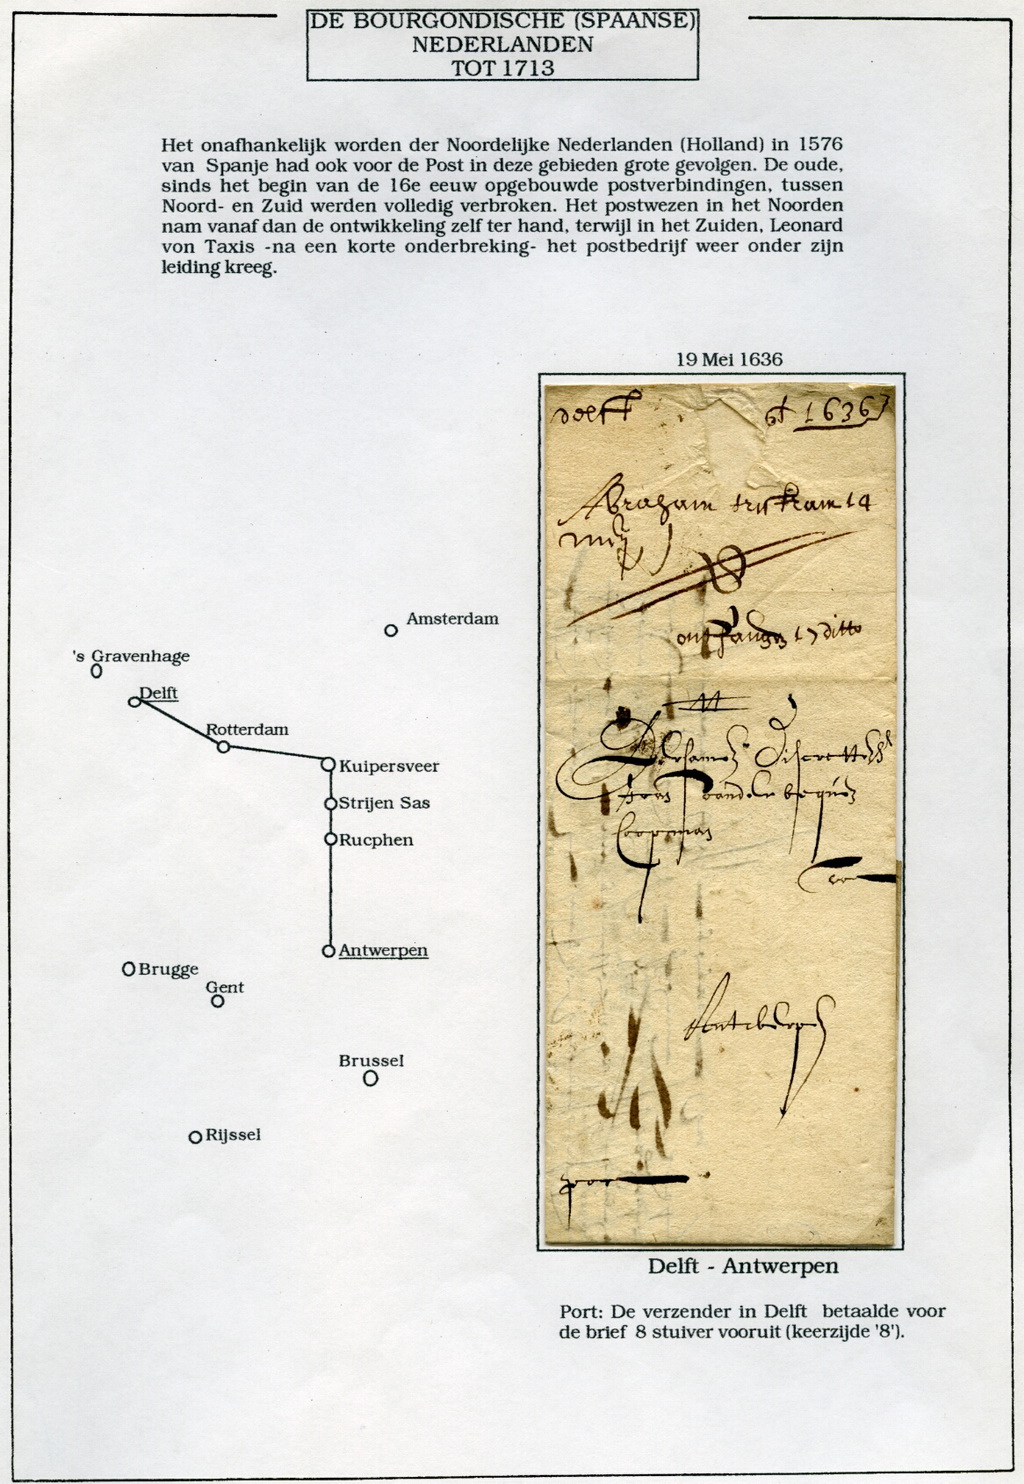 DE BOURGONDISCHE (SPAANSE)
NEDERLANDEN
TOT 1713
Het onafhankelijk worden der Noordelijke Nederlanden (Holland) in 1576
van Spanje had ook voor de Post in deze gebieden grote gevolgen. De oude,
sinds het begin van de 16e eeuw opgebouwde postverbindingen, tussen
Noord- en Zuid werden volledig verbroken. Het postwezen in het Noorden
nam vanaf dan de ontwikkeling zelf ter hand, terwijl in het Zuiden, Leonard
von Taxis -na een korte onderbreking- het postbedrijf weer onder zijn
leiding kreeg.
19 Mei 1636
delfft 1636
Abraham 14
meij
ontfangen 17 ditto
Discretten
vander
Coopman
Antwerpen
port
Amsterdam
's Gravenhage
Delft
Rotterdam
Kuipersveer
Strijen Sas
Rucphen
Antwerpen
Brugge
Gent
Brussel
Rijssel
Delft - Antwerpen
Port: De verzender in Delft betaalde voor
de brief 8 stuiver vooruit (keerzijde '8').